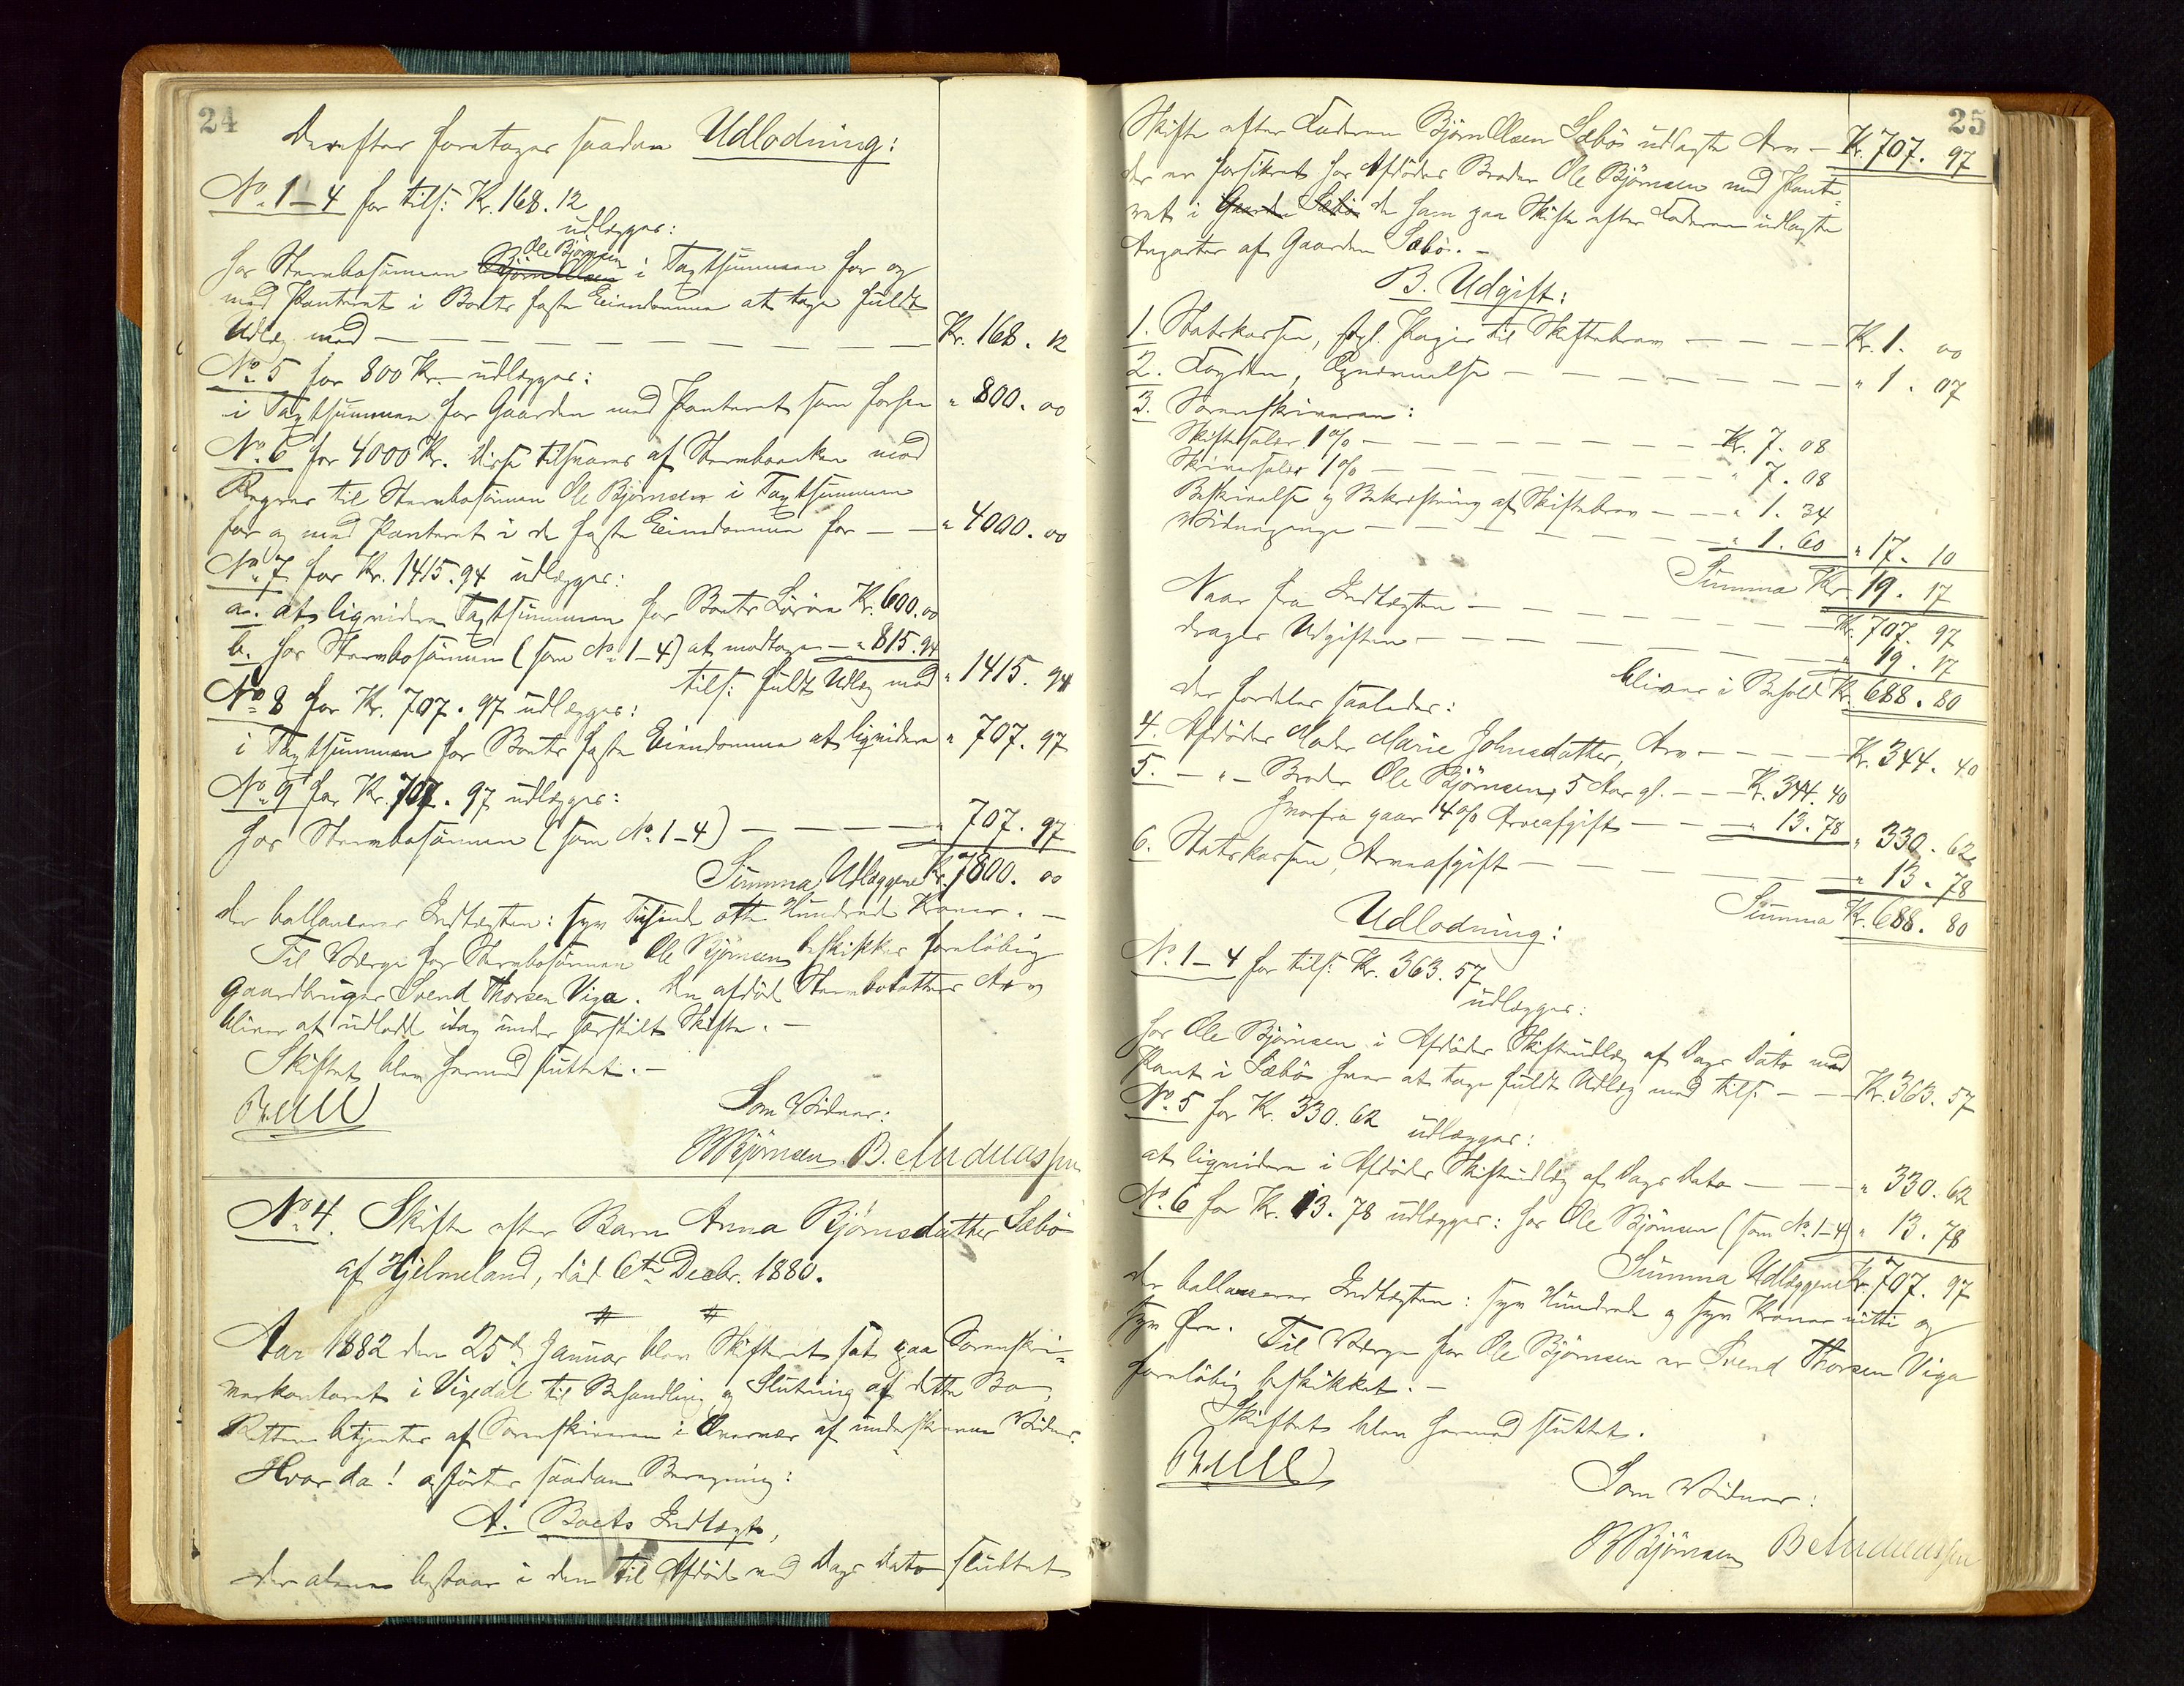 24
Derefter foretages saadan Udlodning:
No 1–4 for tils: Kr. 168.12
udlægges:
hos Stervbosønnen Bjørn Olsen Ole Bjørnsen i Taxtsummen for og
med Panteret i Boets faste Eiendomme at tage fuldt
Udlæg med — Kr. 168. 12
No 5 for 800 Kr. udlægges:
i Taxtsummen for Gaarden med Panteret som forhen " 800. 00
No 6 for 4000 Kr. disse tilsvares af Stervboenken mod
Regres til Stervbosønnen Ole Bjørnsen i Taxtsummen
for og med Panteret i de faste Eiendomme for — " 4000. 00
No 7 for Kr. 1415.94 udlægges:
a. at liqvidere Taxtsummen for Boets Løsøre Kr. 600.00
b. hos Stervbosønnen (som No 1–4) at modtage — " 815.94
tils: fuldt Udlæg med " 1415. 94
No 8 for Kr. 707.97 udlægges:
i Taxtsummen for Boets faste Eiendomme at liqvidere " 707. 97
No 9 for Kr. 707.97 udlægges:
hos Stervbosønnen (som No 1–4) — " 707. 97
Summa Udlæggene Kr. 7800. 00
der ballancerer Indtægten: syv Tusind otte Hundrede Kroner. –
Til Værge for Stervbosønnen Ole Bjørnsen beskikkes foreløbig
Gaardbruger Svend Thorsen Viga. Den afdød Stervbodatters Arv
bliver at udlodde idag under særskilt Skifte. –
Skiftet blev hermed sluttet. –
Som Vidner:
Bjørnsen. B. Andreassen
No 4. Skifte efter Barn Anna Bjørnsdatter Sæbø
af Hjelmeland, død 6te Decbr. 1880.
Aar 1882 den 25de Januar blev Skifteret sat paa Sorenskri-
verkontoret i Vigedal til Behandling og Slutning af dette Bo,
Retten betjentes af Sorenskriveren i Overvær af underskrevne Vidner.
Hvor da! asførtes saadan Beregning:
A. Boets Indtægt,
der alene bestaar i den til Afdøde ved Dags Dato sluttet
25
Skifte efter Faderen Bjørn Olsen Sæbø udlagte Arv — Kr. 707. 97
der er forsikret hos Afdødes Broder Ole Bjørnsen med Pante-
ret i Gaarden Sæbø de ham paa Skifte efter Faderen udlagte
Anparter af Gaarden Sæbø. –
B. Udgift:
1. Statskassen, stpl. Papir til Skiftebrev — Kr. 1. 00
2. Fogden, Opnævnelse — " 1. 07
3. Sorenskriveren:
Skiftesalær 1% — Kr. 7. 08
Skriversalær 1% — " 7. 08
Beskrivelse og Bekræftning af Skiftebrev — " 1. 34
Vidnepenge — " 1. 60 " 17. 10
Summa Kr. 19. 17
Naar fra Indtægten — Kr. 707. 97
drages Udgiften — " 19. 17
bliver i Behold Kr. 688. 80
der fordeles saaledes:
4. Afdødes Moder Marie Johnsdatter, Arv — Kr. 344. 40
5. — " — Broder Ole Bjørnsen, 5 Aar gl. — Kr. 344. 40
hvorfra gaar 4% Arveafgift — " 13. 78 " 330. 62
6. Statskassen, Arveafgift — " 13. 78
Summa Kr. 688. 80
Udlodning:
No 1–4 for tils: Kr. 363. 57
udlægges:
hos Ole Bjørnsen i Afdødes Skifteudlæg af Dags Dato med
Pant i Sæbø hver at tage fuldt Udlæg med tils: — Kr. 363. 57
No 5 for Kr. 330. 62 udlægges:
at liqvidere i Afdødes Skifteudlæg af Dags Dato — " 330. 62
No 6 for Kr. 13. 78 udlægges: hos Ole Bjørnsen (som No 1–4) " 13. 78
Summa Udlæggene Kr. 707. 97
der ballancerer Indtægten: syv Hundrede og syv Kroner nitti og
syv Øre. Til Værge for Ole Bjørnsen er Svend Thorsen Viga
foreløbig beskikket. –
Skiftet blev hermed sluttet.
Som Vidner:
Bjørnsen B Andreassen